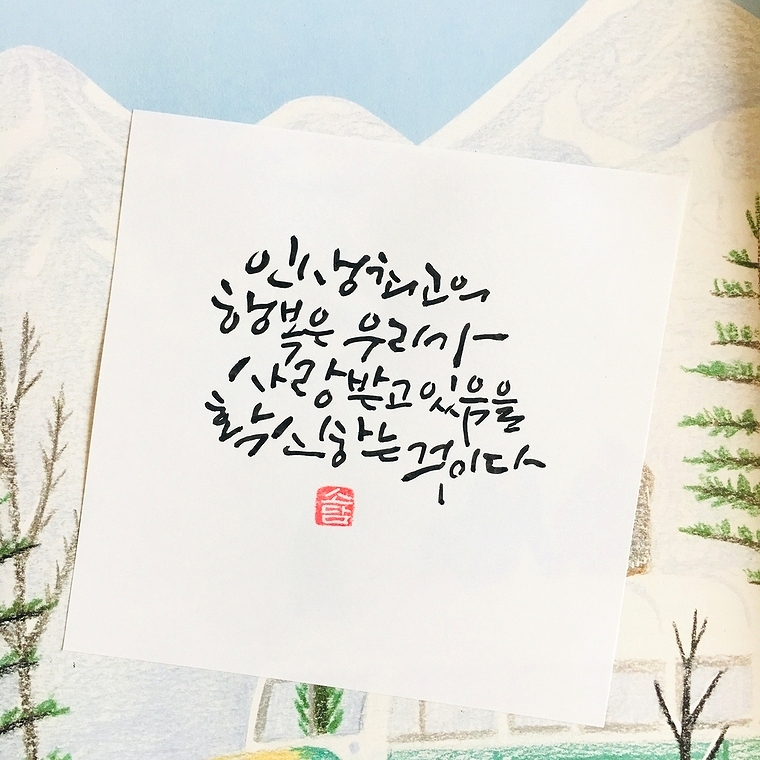 인생최고의
행복은 우리가
사랑받고있음을
확신하는것이다
소담